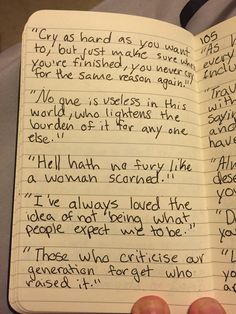 "Cry as hard as you want
to, but just make sure when
you're finished, you never cry
for the same reason again."
"No one is useless in this
world, who lightens the
burden of it for any one
else."
"Hell hath no fury like
a woman scorned."
"I've always loved the
idea of not being what
people expect me to be."
"Those who criticise our
generation forget who
raised it."
105
"As
every
inclu
"Trav
with
sayin
and
have
"Alw
dese
you
"D
you
"U
you